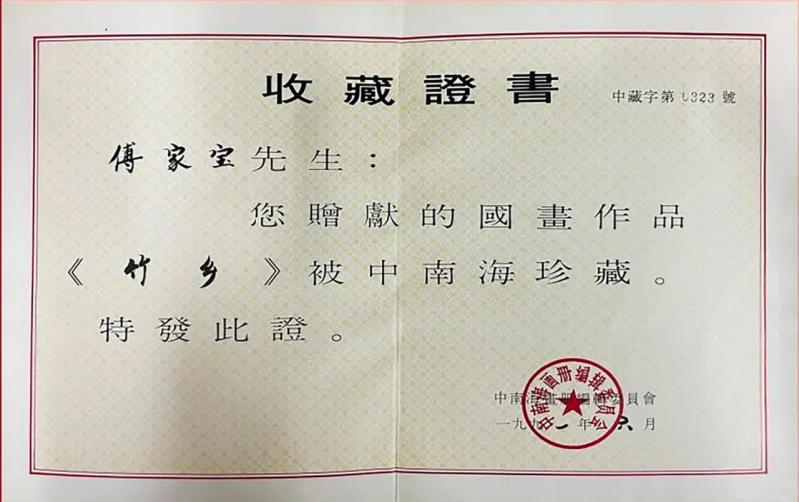 收藏證書
中藏字第0323號
傅家宝先生：
您贈獻的國畫作品
《竹乡》被中南海珍藏。
特發此證。
中南海畫册編輯委員會
一九九一年六月
中南海画册编辑委员会